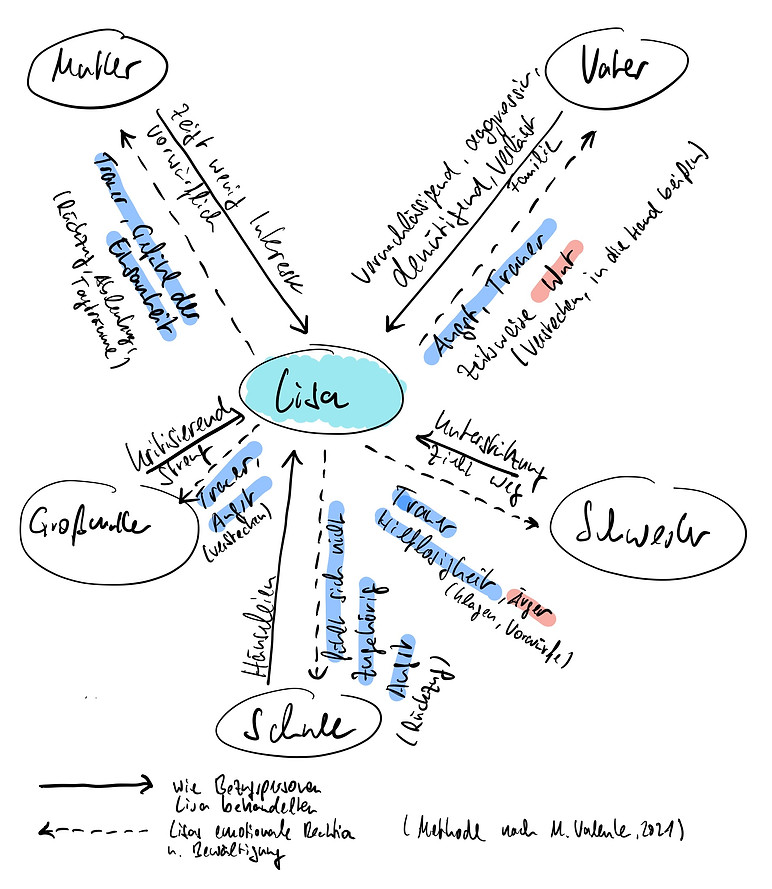 Mutter
Vater
zeigt wenig Interesse
vorwürflich
Trauer, Gefühl der
Einsamkeit
(Rückzug, Ablenkung,
Tagträume)
vernachlässigend, aggressiv,
demütigend, verlässt
Familie
Angst, Trauer
zeitweise Wut
(Verstecken, in die Hand beißen)
Lisa
kritisierend
streng
Trauer,
Angst
(verstecken)
Großmutter
Unterstützung
zieht weg
Trauer
Hilflosigkeit, Ärger
(klagen, Vorwürfe)
Schwester
Hänseleien
fühlt sich nicht
zugehörig
Angst
(Rückzug)
Schule
wie Bezugspersonen
Lisa behandelten
Lisas emotionale Reaktion
u. Bewältigung
(Methode nach M. Valente, 2021)